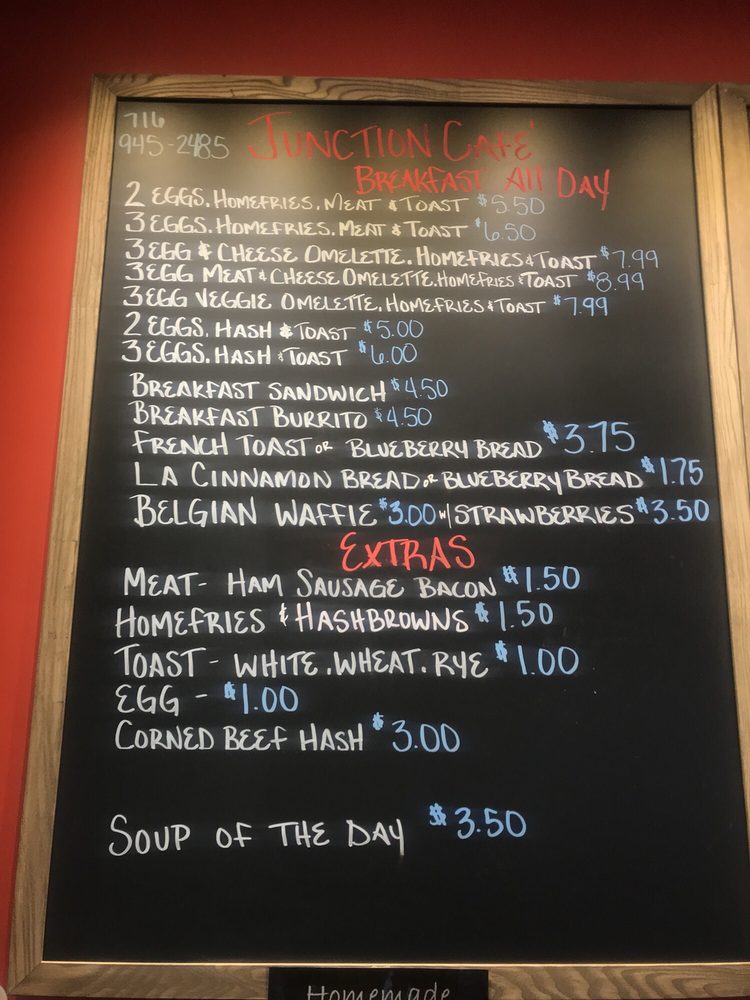 716
945-2485 JUNCTION CAFE
BREAKFAST All DAY
2 EGGS. HOMEFRIES. MEAT & TOAST $5.50
3 EGGS. HOMEFRIES. MEAT & TOAST $6.50
3 EGG & CHEESE OMELETTE. HOMEFRIES & TOAST $7.99
3 EGG MEAT & CHEESE OMELETTE. HOMEFRIES & TOAST $8.99
3 EGG VEGGIE OMELETTE. HOMEFRIES & TOAST $7.99
2 EGGS. HASH & TOAST $5.00
3 EGGS. HASH & TOAST $6.00
BREAKFAST SANDWICH $4.50
BREAKFAST BURRITO $4.50
FRENCH TOAST OR BLUEBERRY BREAD $3.75
LA CINNAMON BREAD OR BLUEBERRY BREAD $1.75
BELGIAN WAFFlE $3.00 w/ STRAWBERRIES $3.50
EXTRAS
MEAT - HAM SAUSAGE BACON $1.50
HOMEFRIES & HASHBROWNS $1.50
TOAST - WHITE. WHEAT. RYE $1.00
EGG - $1.00
CORNED BEEF HASH $3.00
SOUP OF THE DAY $3.50
Homemade